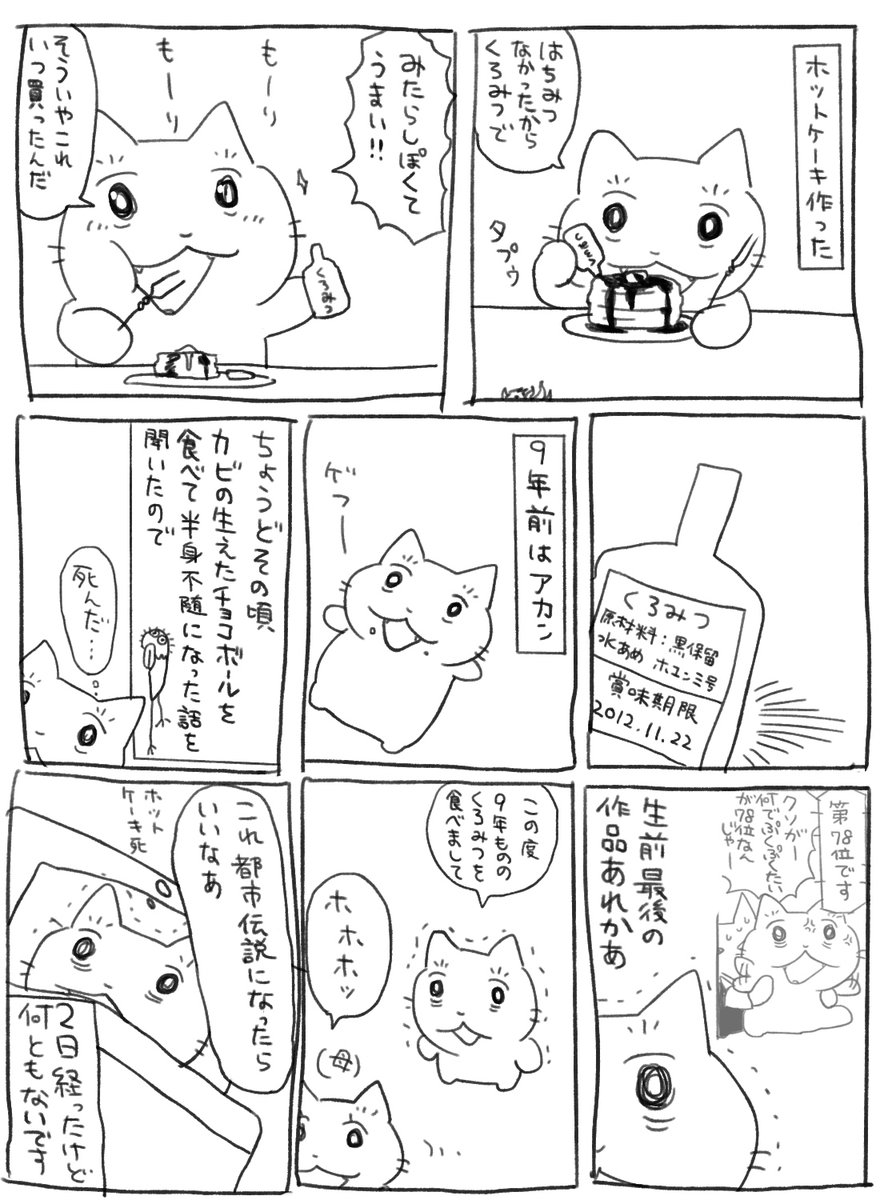 ホットケーキ作った
はちみつ
なかったから
くろみつで
タプゥ
くろみつ
みたらしぽくて
うまい!!
もーり
もーり
くろみつ
そういやこれ
いつ買ったんだ
くろみつ
原材料:黒保留
水あめ ホエン三号
賞味期限
2012.11.22
9年前はアカン
ゲフー
ちょうどその頃
カビの生えたチョコボールを
食べて半身不随になった話を
聞いたので
死んだ…
第78位です
クソがー
何でぷくぷくたい
が78位なん
じゃー
生前最後の
作品あれかあ
この度
9年ものの
くろみつを
食べまして
ホホホッ
(母)
これ都市伝説になったら
いいなあ
ホット
ケーキ死
2日経ったけど
何ともないです